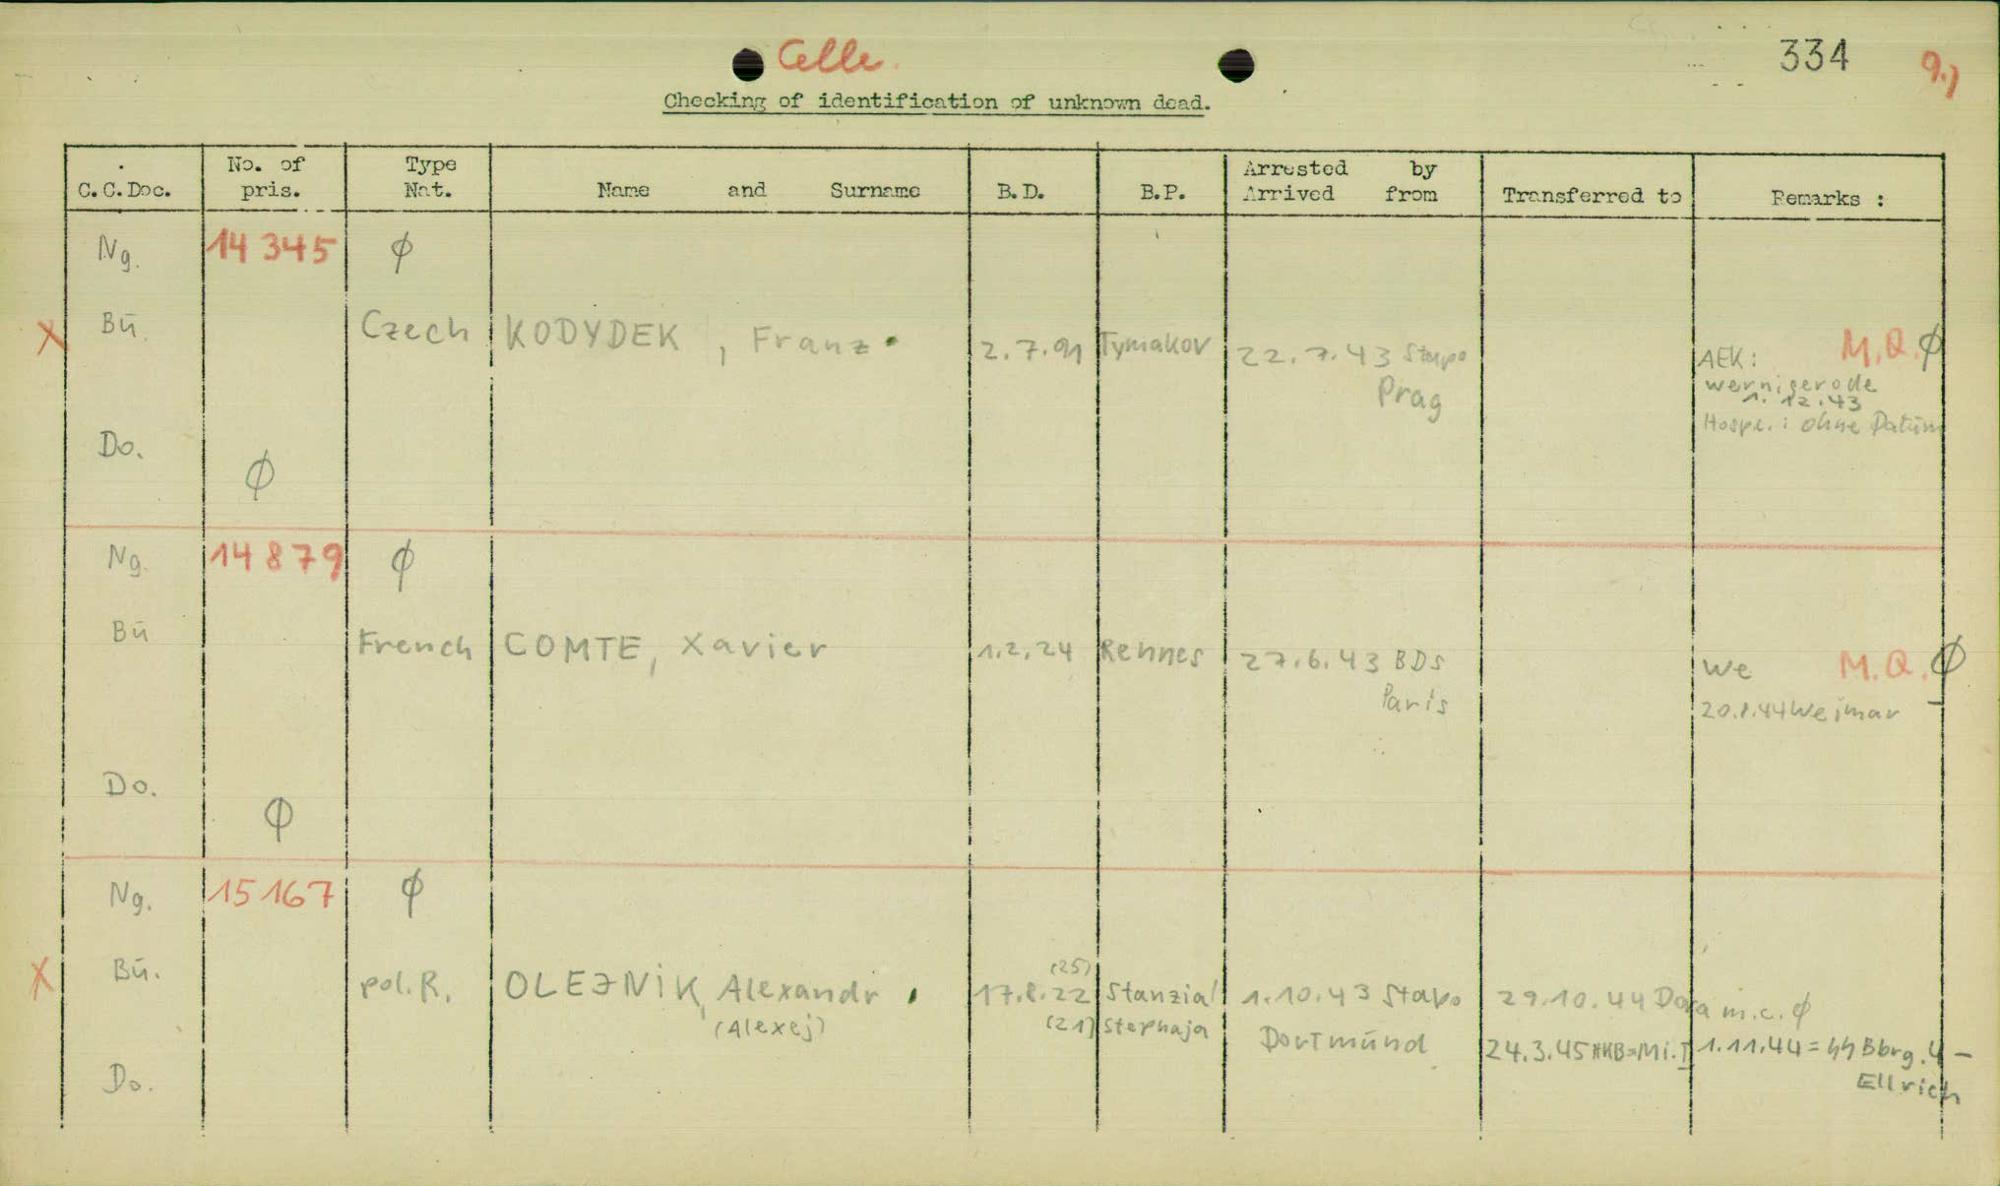 Celle.
334
9.)
Checking of identification of unknown dead.
C.C.Doc. No. of pris. Type Nat. Name and Surname B.D. B.P. Arrested by Arrived from Transferred to Remarks :
Ng. 14 345 ϕ
X Bü. Czech KODYDEK, Franz 2.7.91 Tymakov 22.7.43 Stapo M.Q. ϕ
Prag AEK:
wernigerode
1.12.43
Hospr.: ohne Datum
Do. ϕ
Ng. 14 879 ϕ
Bü French COMTE, Xavier 1.2.24 Rennes 27.6.43 BDS We M.Q. ϕ
Paris 20.1.44 Weimar -
Do. ϕ
Ng. 15 167 ϕ
X Bü. pol.R. OLEJNIK, Alexandr 17.8.22 (25) Stanzial 1.10.43 Stapo 29.10.44 Dora m.c. ϕ
(Alexej) (21) Stephaja Dortmund 24.3.45 HKB=Mi.I 1.11.44 = SS Bbrg.4 -
Ellrich
Do.